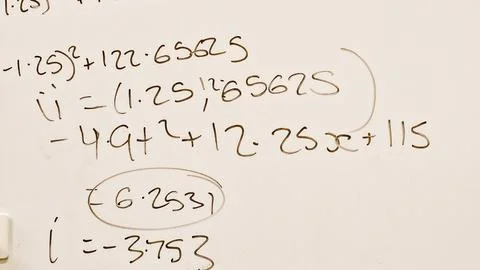 1.25)
-1.25)² + 122.65625
ii = (1.25, 65625)
-4.9t² + 12.25x + 115
= 6.2531
i = -3.753